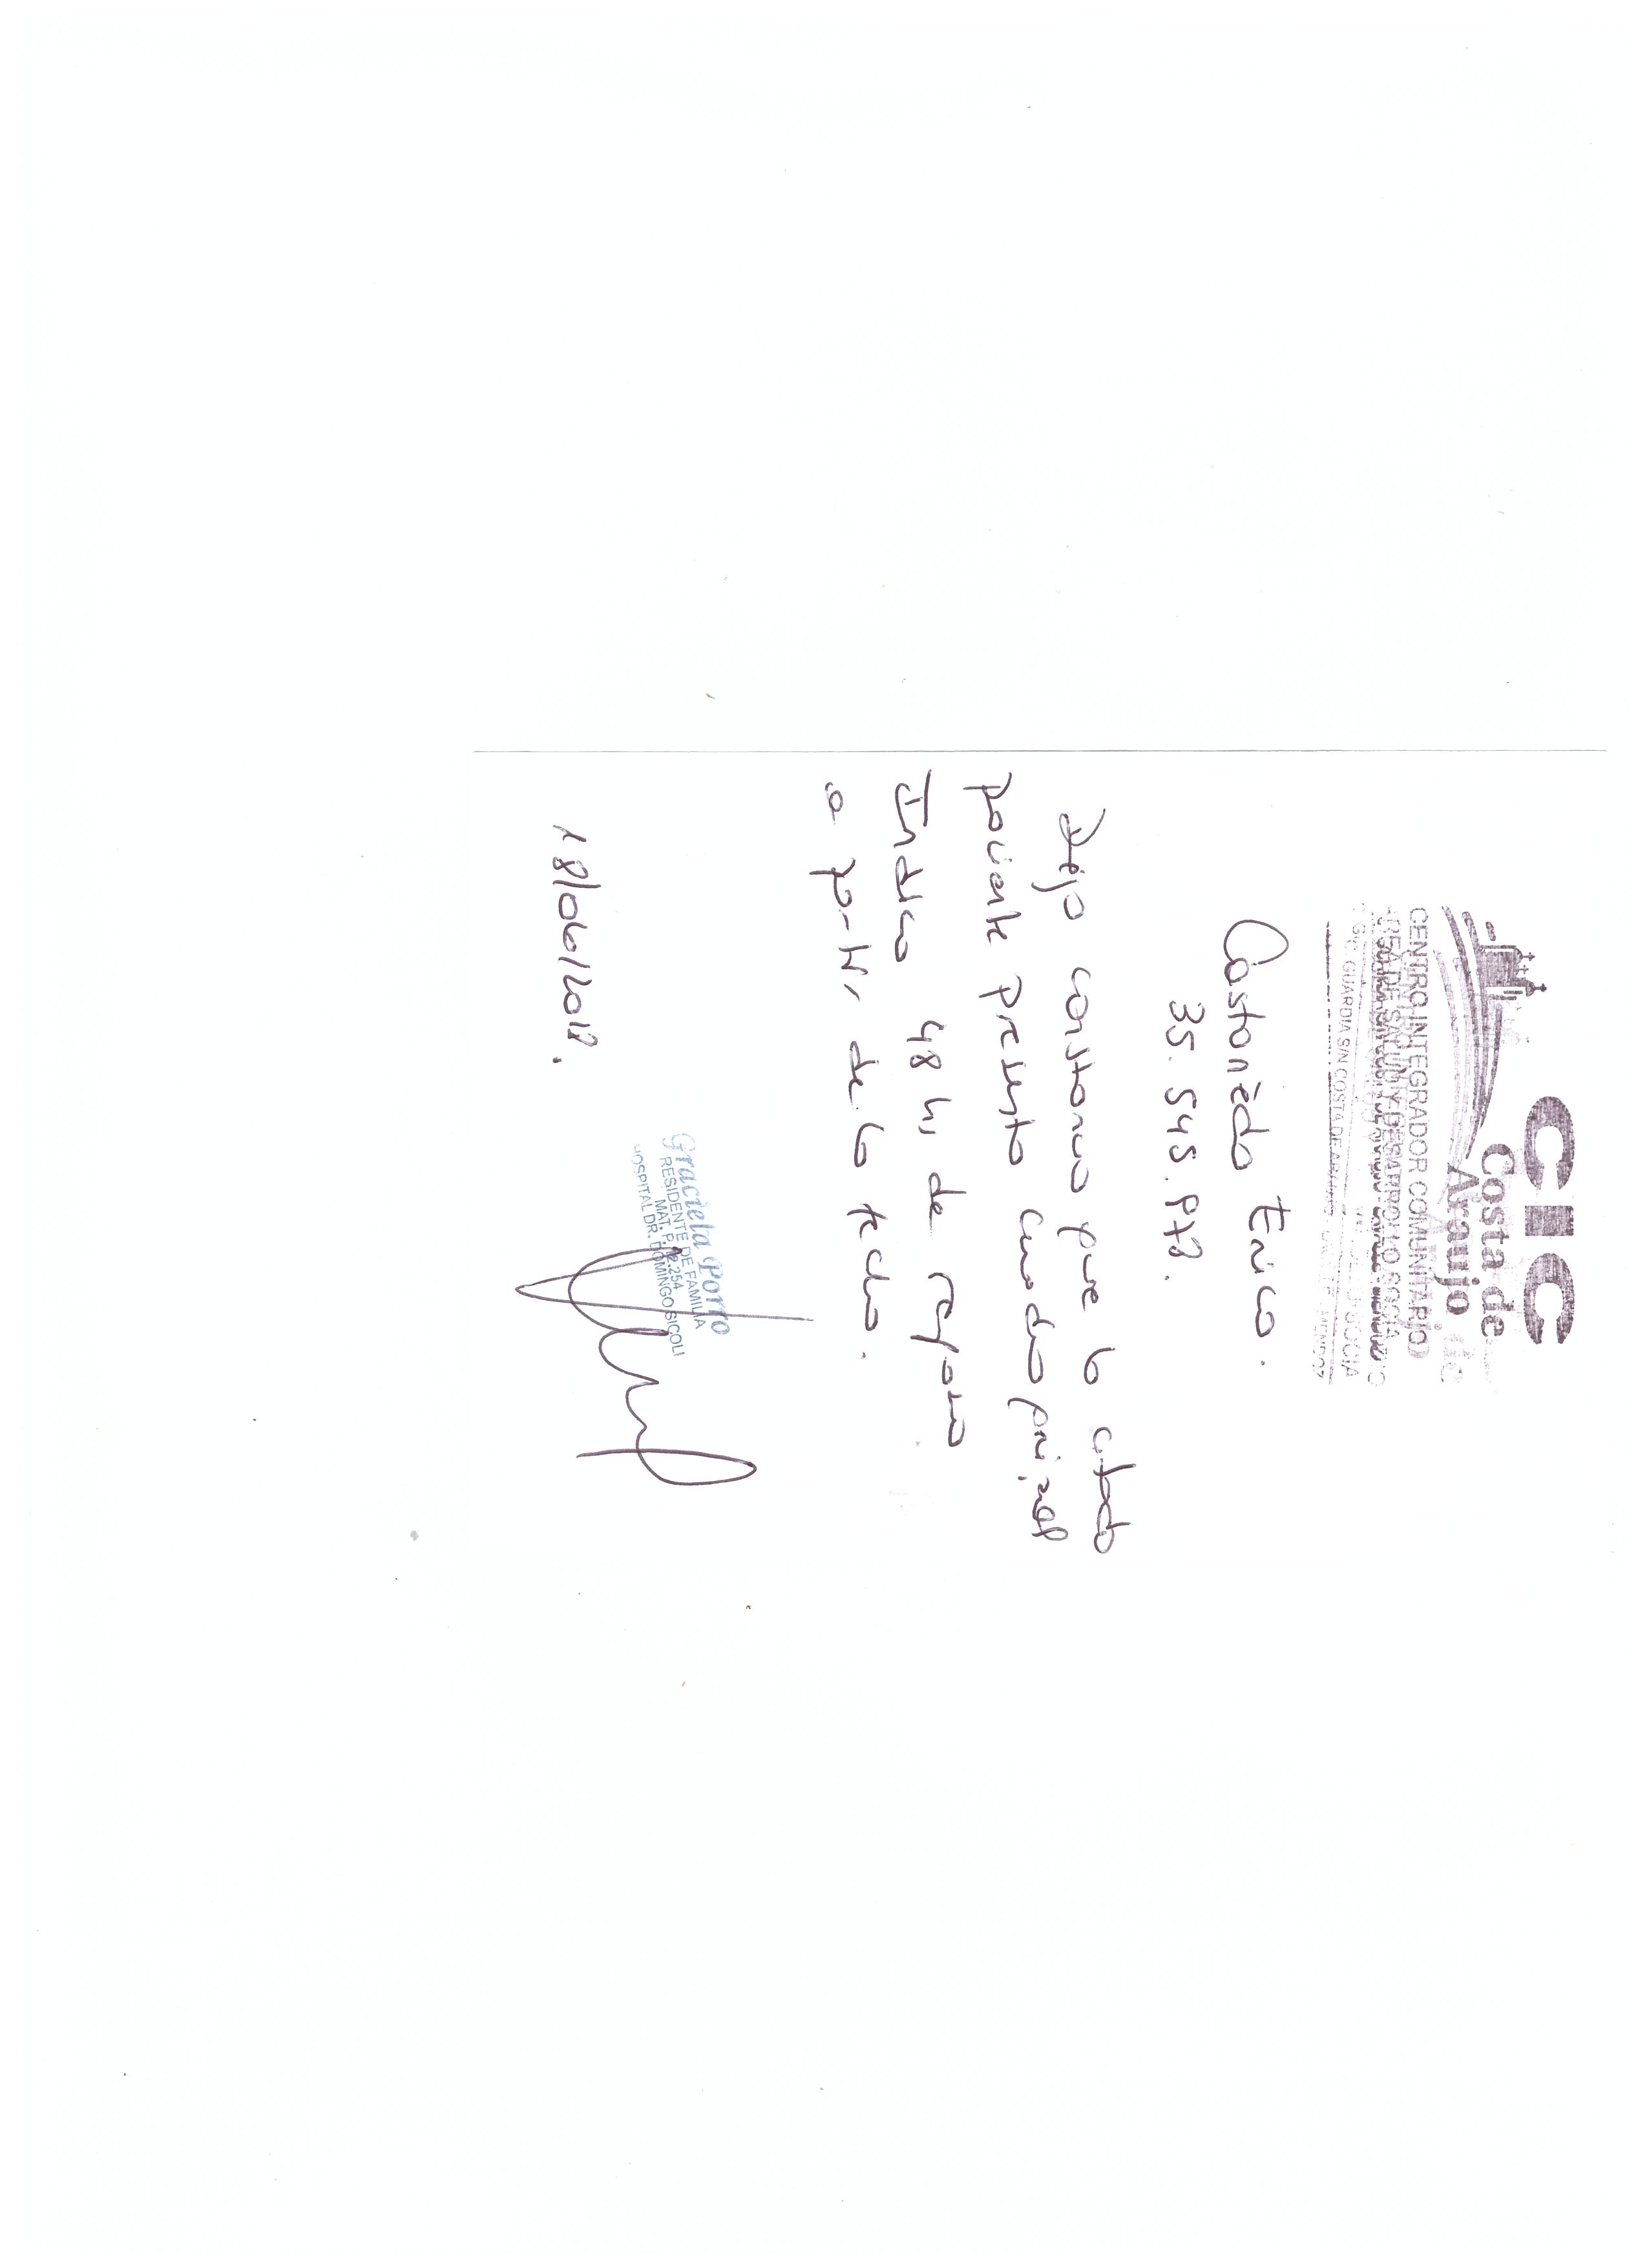 CIC
Costa de
Araujo
CENTRO INTEGRADOR COMUNITARIO
AREA DE SALUD Y DESARROLLO SOCIAL
GUARDIA S/N COSTA DE ARAUJO
Castañedo Erica.
35.545.
Dejo constancia que la citada
paciente presento cuadro gripal
Indico 48 hs de reposo
a partir de la fecha.
18/06/2018.
Graciela Porro
RESIDENTE DE FAMILIA
MAT. P 12.254
HOSPITAL DR. DOMINGO SICOLI